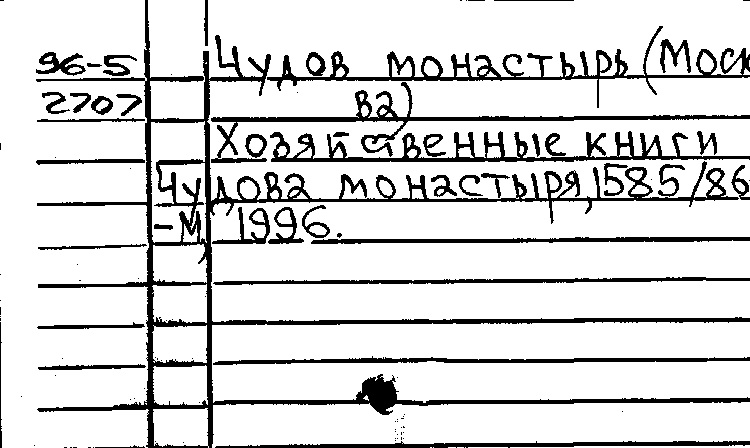 96-5 Чудов монастырь (Моск
2707 ва)
Хозяйственные книги
Чудова монастыря, 1585/86
-М, 1996.